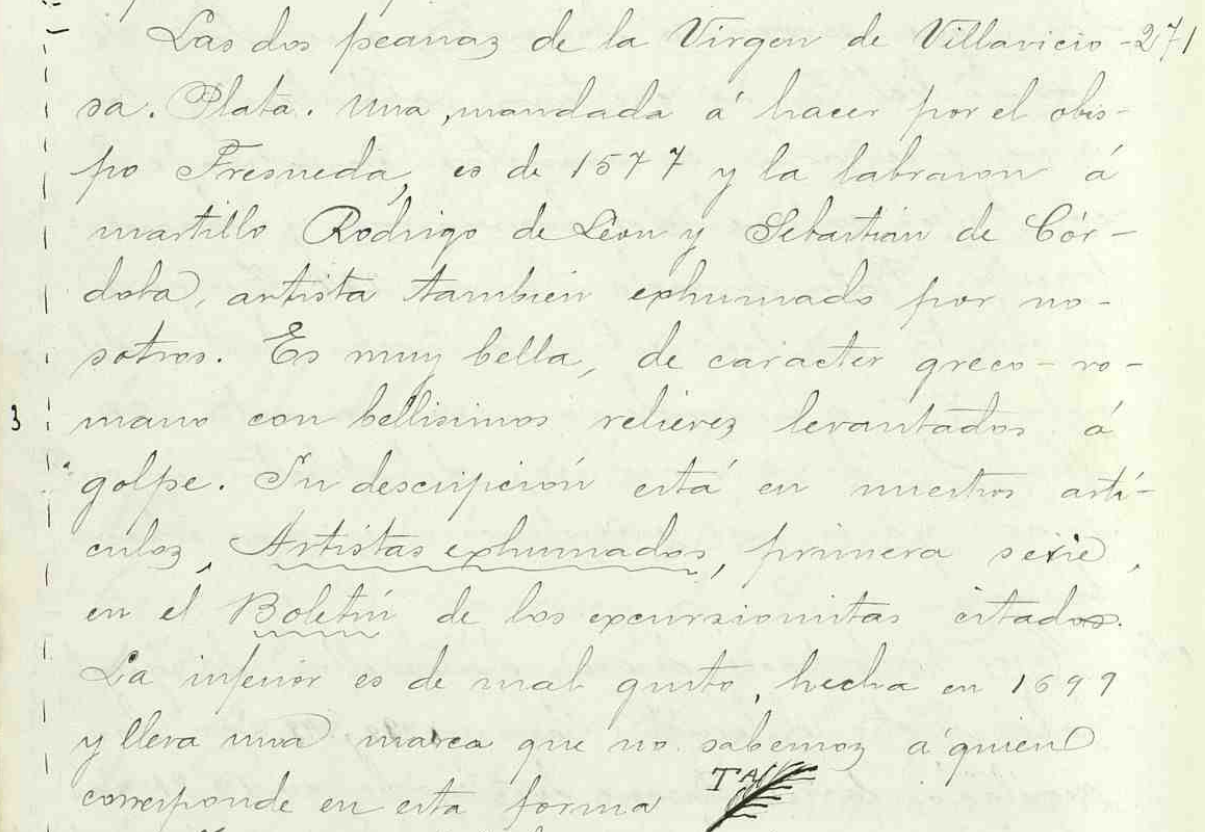 Las dos peanas de la Virgen de Villavicio- 271
sa. Plata. Una, mandada á hacer por el obis-
po Fresneda, es de 1577 y la labraron á
martillo Rodrigo de León y Sebastián de Cór-
doba, artista tambien exhumado por no-
sotros. Es muy bella, de caracter greco-ro-
3 mano con bellisimos relieves levantados á
golpe. Su descripción está en nuestros artí-
culos, Artistas exhumados, primera serie,
en el Boletín de los excursionistas citados.
La inferior es de mal gusto, hecha en 1699
y lleva una marca que no sabemos á quien
corresponde en esta forma TA